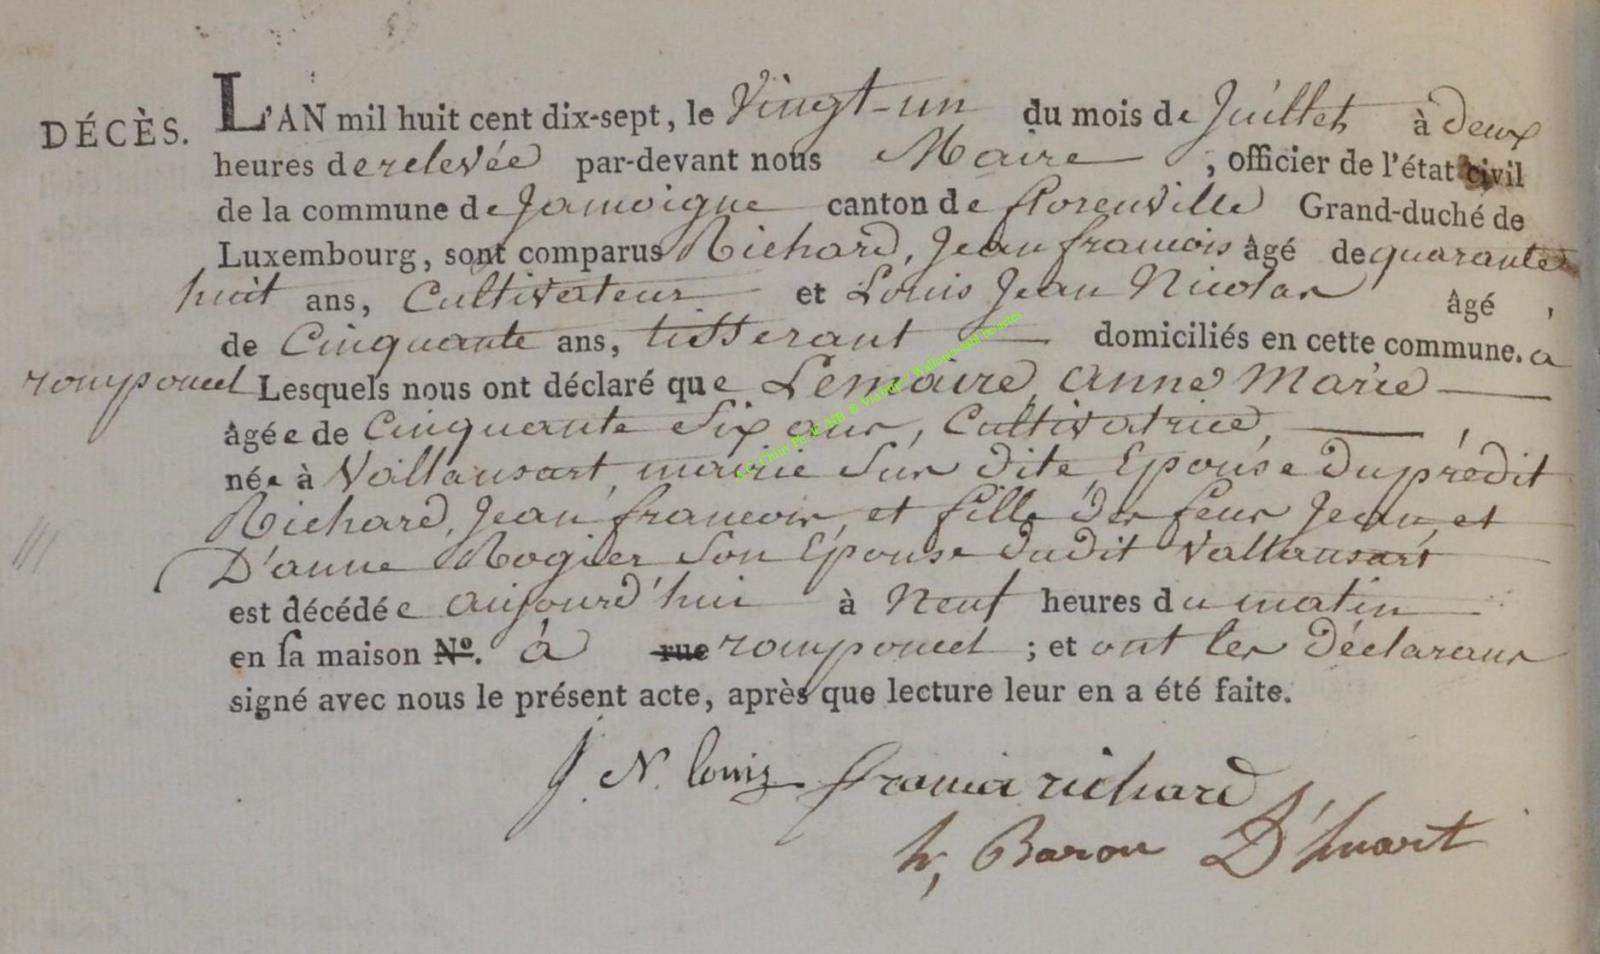 DÉCÈS. L'AN mil huit cent dix-sept, le Vingt-un du mois de Juillet à deux
heures de relevée par-devant nous Maire , officier de l'état civil
de la commune de Jamoigne canton de florenville Grand-duché de
Luxembourg, sont comparus Richard, Jean francois âgé de quarante
huit ans, Cultivateur et Louis Jean Nicolas âgé ,
de Cinquante ans, tisserant domiciliés en cette commune. a
romponcel Lesquels nous ont déclaré que Lemaire, anne Marie
âgée de Cinquante Six ans, Cultivatrice, ,
née à Vallansart, mairie Sus dite, Epouse du prédit
Richard, Jean francois, et fille des feus Jean, et
D'anne Rogier Son Epouse dudit Vallansart
est décédée aujourd'hui à Neuf heures du matin
en sa maison No. à rue romponcel ; et ont les déclarans
signé avec nous le présent acte, après que lecture leur en a été faite.
J. N. louis francoi richard
h, Baron D'huart